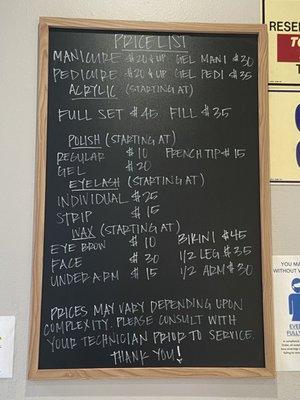 PRICE LIST
MANICURE $20 & UP GEL MANI $30
PEDICURE $20 & UP GEL PEDI $35
ACRYLIC (STARTING AT)
FULL SET $45 FILL $35
POLISH (STARTING AT)
REGULAR $10 FRENCH TIP $15
GEL $20
EYELASH (STARTING AT)
INDIVIDUAL $25
STRIP $15
WAX (STARTING AT)
EYE BROW $10 BIKINI $45
FACE $30 1/2 LEG $35
UNDERARM $15 1/2 ARM $30
PRICES MAY VARY DEPENDING UPON
COMPLEXITY. PLEASE CONSULT WITH
YOUR TECHNICIAN PRIOR TO SERVICE.
THANK YOU!
RESE
TO
YOU MA
WITHOUT